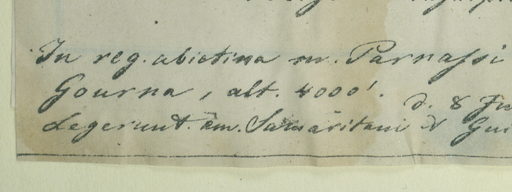 In reg. abietina m. Parnassi
Gourna, alt. 4000'.
d. 8
Legerunt. am. Samaritani &